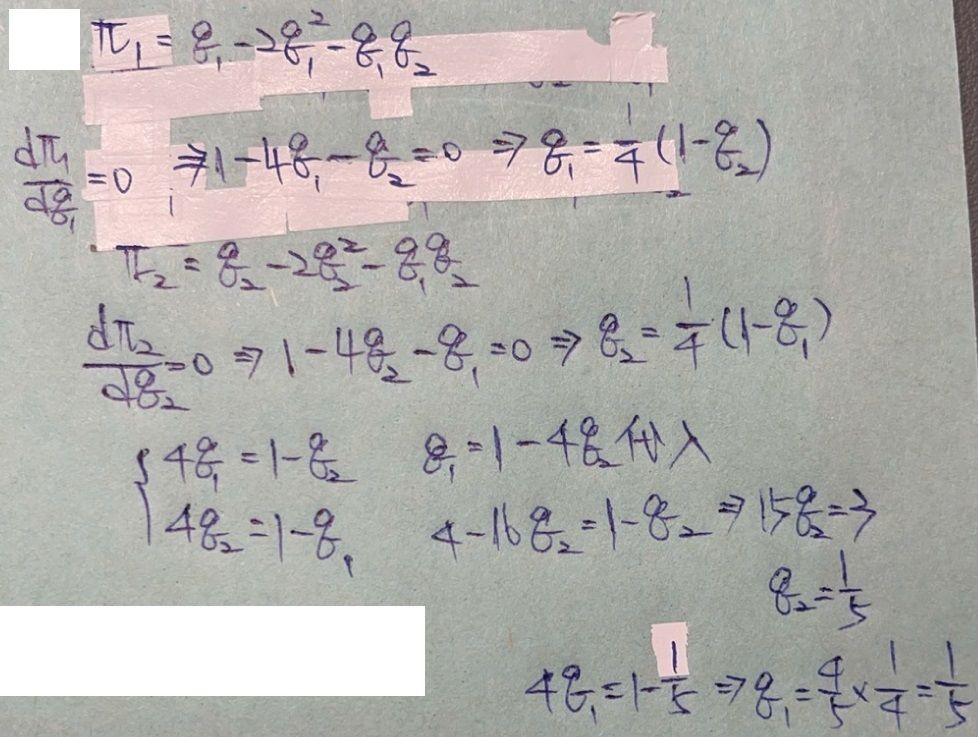 π₁ = q₁ - 2q₁² - q₁q₂
dπ₁/dq₁ = 0 ⇒ 1 - 4q₁ - q₂ = 0 ⇒ q₁ = 1/4 (1 - q₂)
π₂ = q₂ - 2q₂² - q₁q₂
dπ₂/dq₂ = 0 ⇒ 1 - 4q₂ - q₁ = 0 ⇒ q₂ = 1/4 (1 - q₁)
{ 4q₁ = 1 - q₂ q₁ = 1 - 4q₂ 代入
4q₂ = 1 - q₁ 4 - 16q₂ = 1 - q₂ ⇒ 15q₂ = 3
q₂ = 1/5
4q₁ = 1 - 1/5 ⇒ q₁ = 4/5 × 1/4 = 1/5